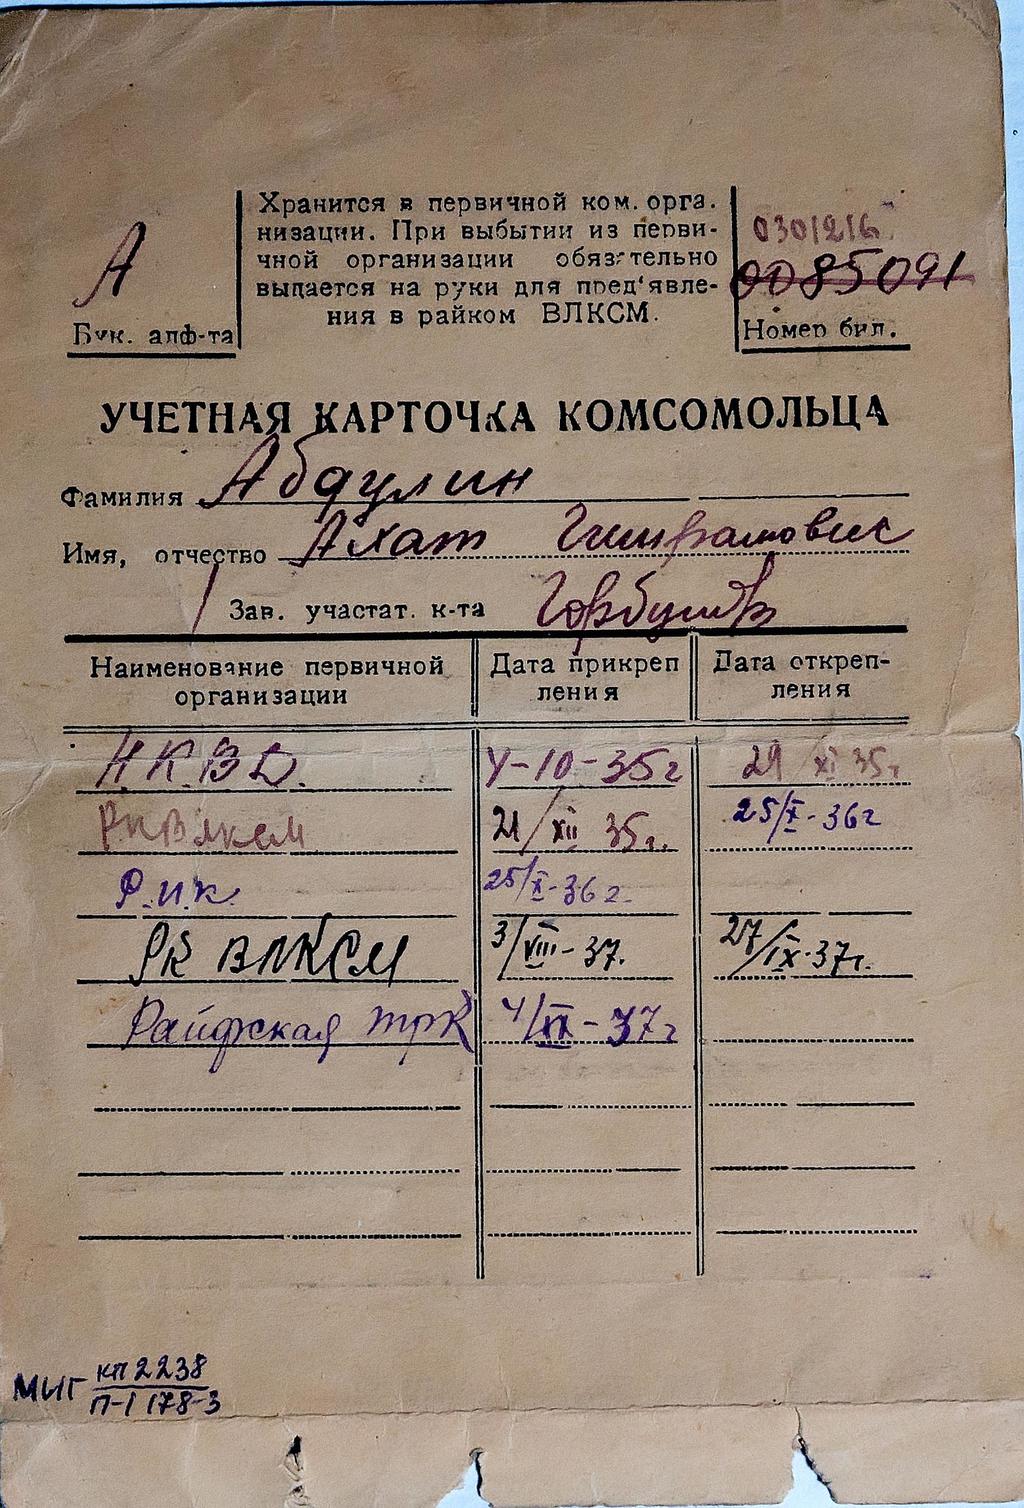 А
Бук. алф-та
Хранится в первичной ком. орга.
низации. При выбытии из перви-
чной организации обязательно
выдается на руки для пред'явле-
ния в райком ВЛКСМ.
0301216
0085091
Номер бил.
УЧЕТНАЯ КАРТОЧКА КОМСОМОЛЬЦА
Фамилия Абдулин
Имя, отчество Ахат
Зав. участат. к-та
Наименование первичной организации
Дата прикреп ления
Дата откреп- ления
Н.К.В.Д. 4-10-35г 29/XI 35г
РКВЛКСМ 21/XII 35г. 25/X-36г
Р.И.К. 25/X-36г.
РК ВЛКСМ 3/VIII-37. 27/IX-37г.
Райфская 37г
МИГ КП 2238
П-1 178-3